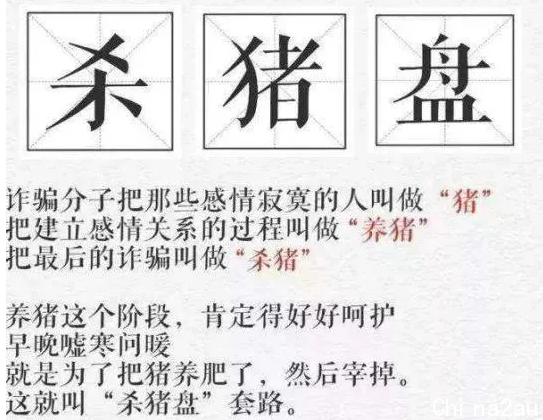 杀猪盘
诈骗分子把那些感情寂寞的人叫做“猪”
把建立感情关系的过程叫做“养猪”
把最后的诈骗叫做“杀猪”
养猪这个阶段，肯定得好好呵护
早晚嘘寒问暖
就是为了把猪养肥了，然后宰掉。
这就叫“杀猪盘”套路。
Chi na2au